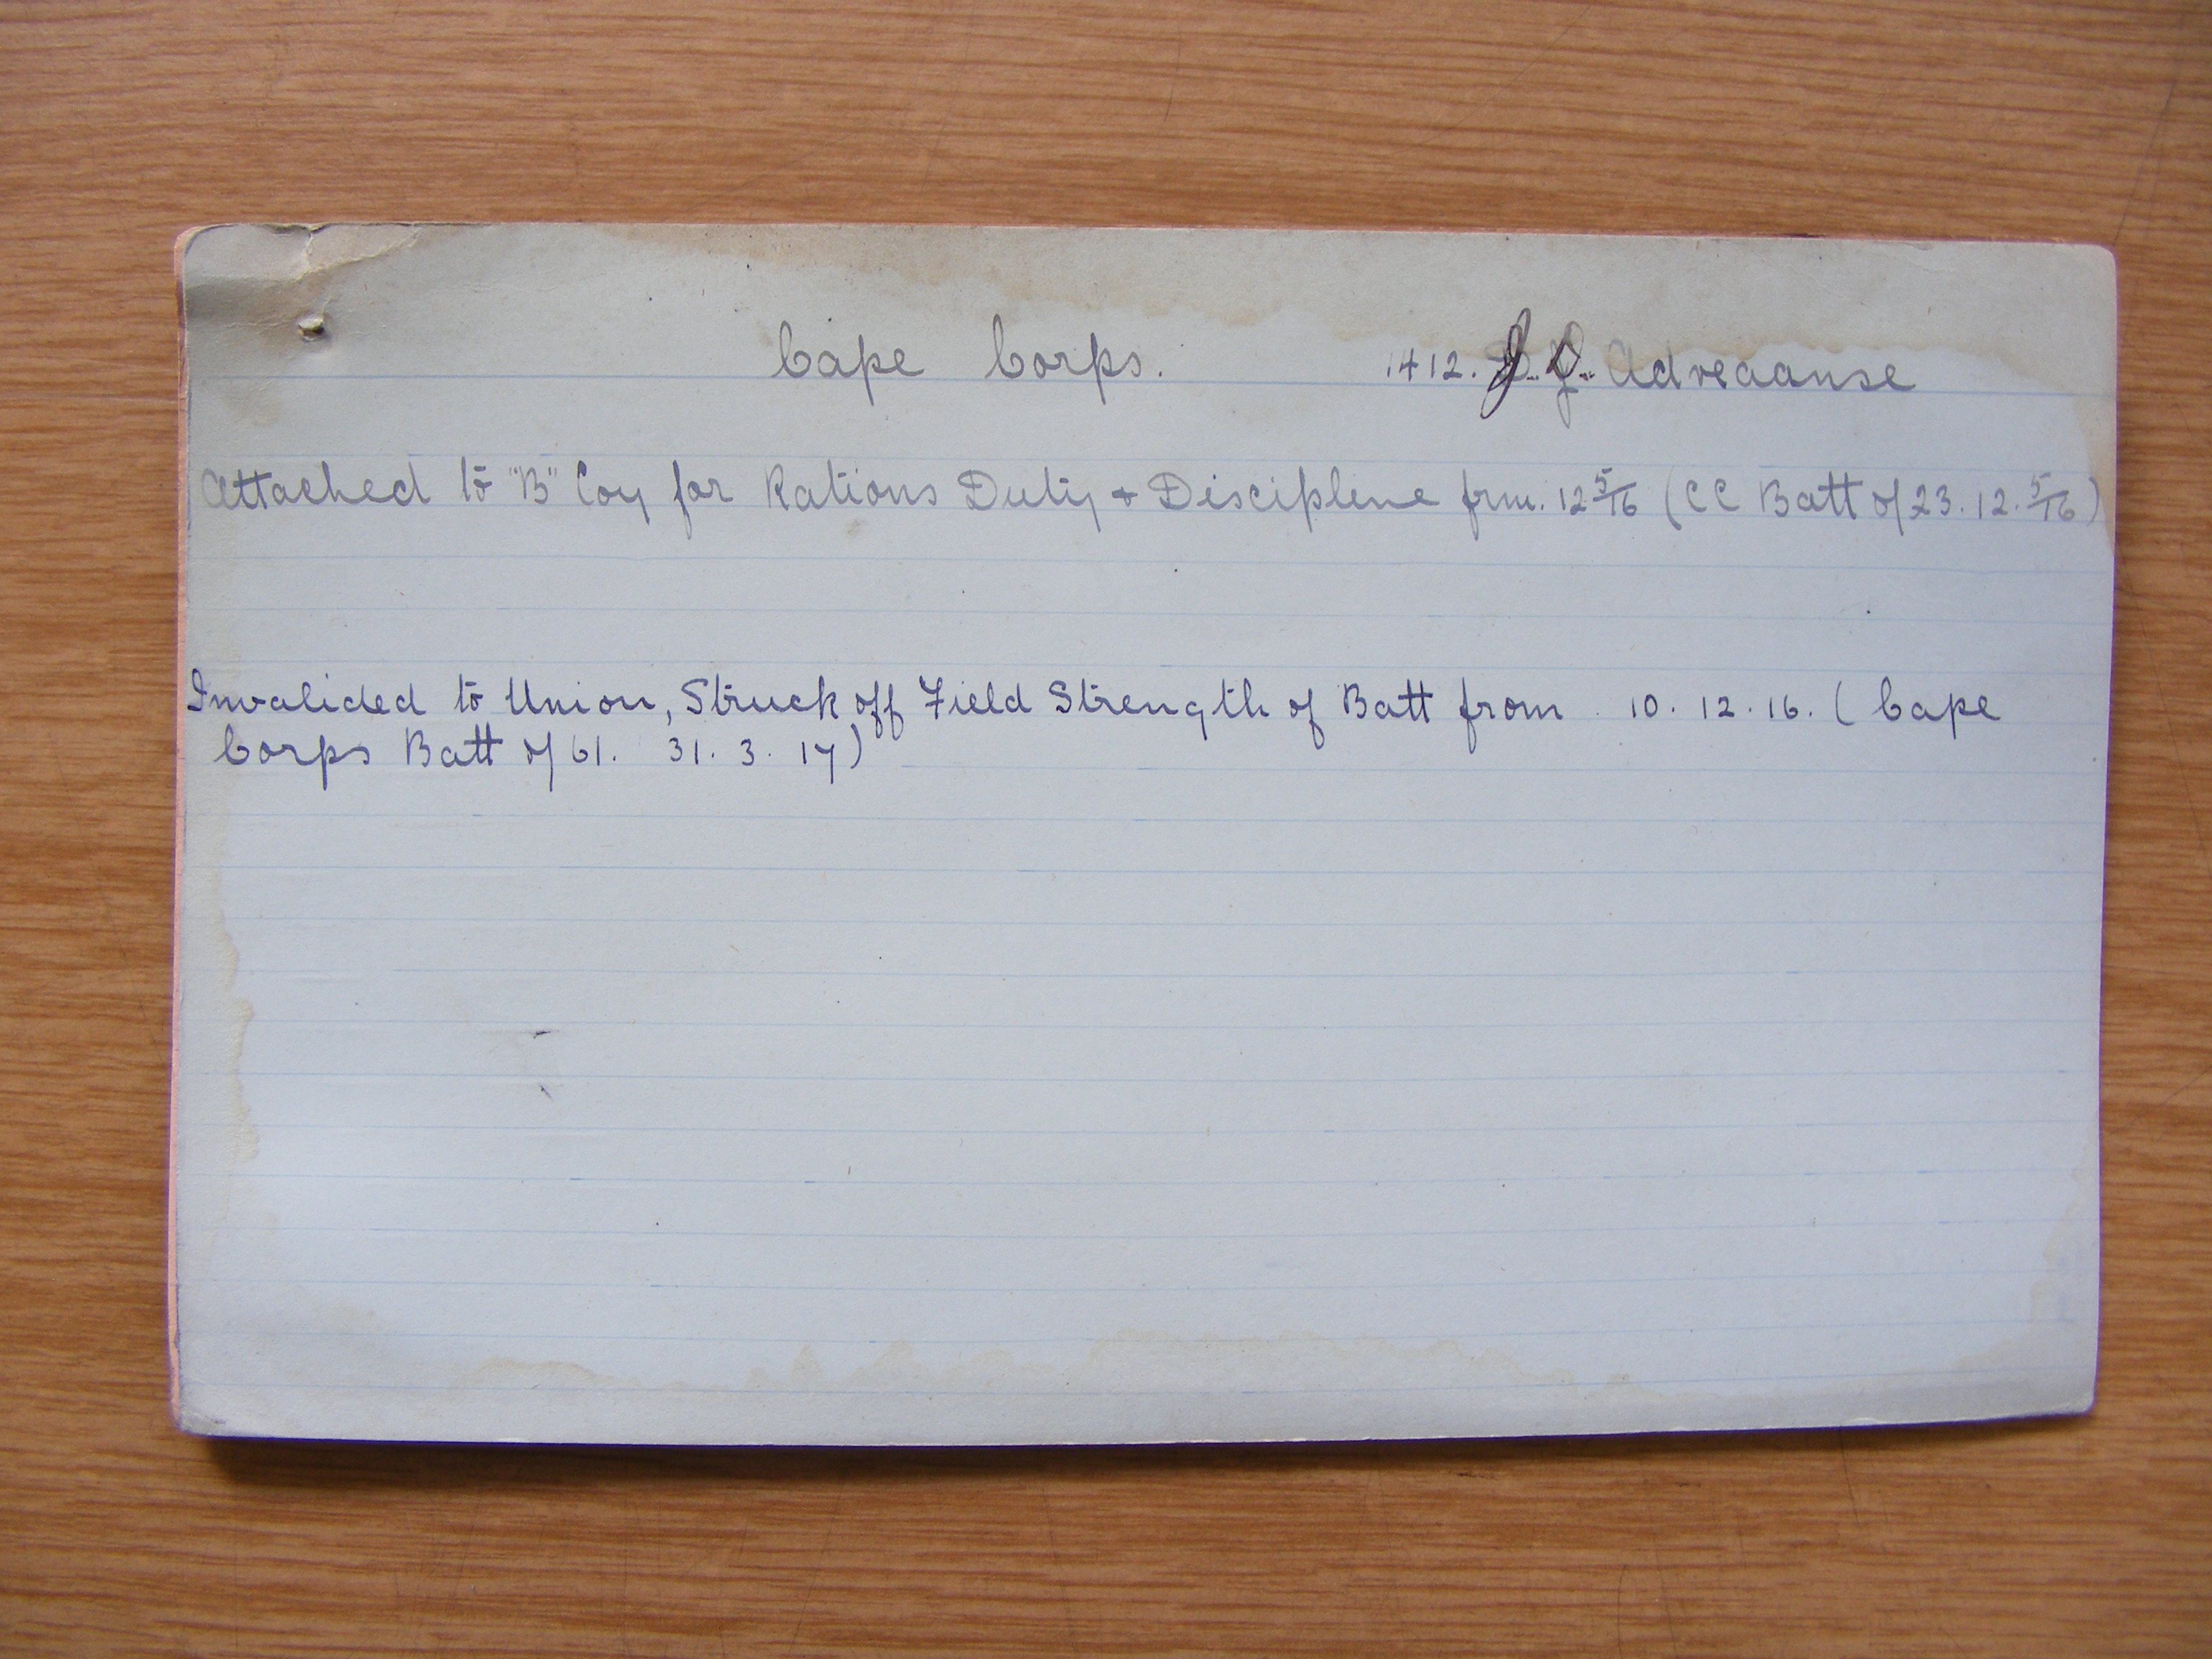 Cape Corps. 1412. J. J. Adreaanse
Attached to "B" Coy for Rations Duty & Discipline frm. 12 5/16 (CC Batt o/23. 12. 5/16)
Invalided to Union, Struck off Field Strength of Batt from 10. 12. 16. (Cape
Corps Batt o/61. 31. 3. 17)